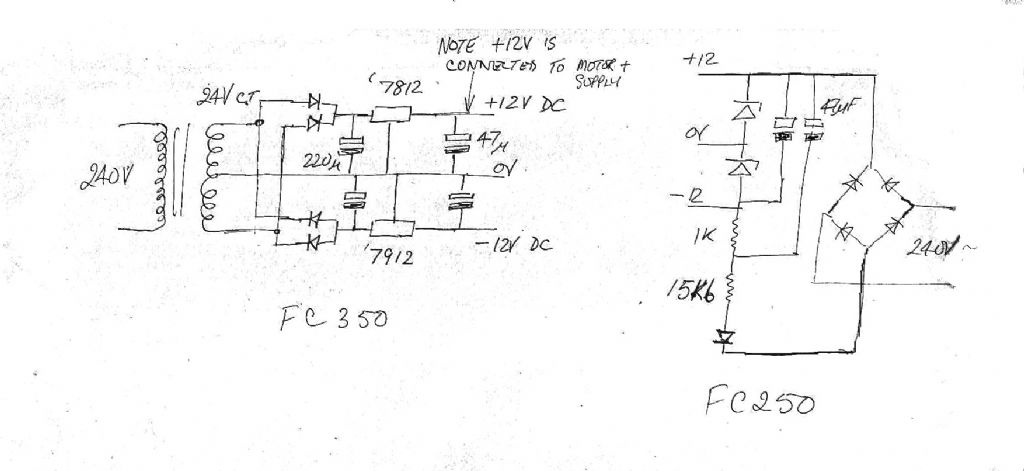 NOTE +12V IS
CONNECTED TO MOTOR +
SUPPLY
'7812
24V CT
+12V DC
220µ
47µ
0V
240V
-12V DC
'7912
FC 350
+12
47µF
0V
-12
1K
15K6
240V ~
FC250